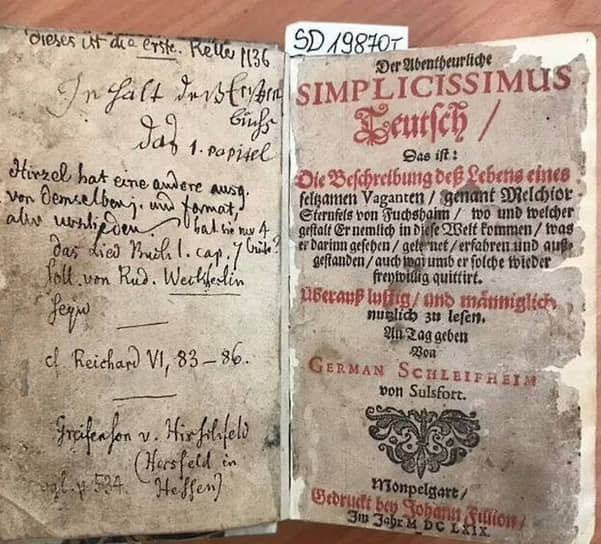 dieses ist die erste. Keller 1136
Inhalt deß Ersten
buchs
Das 1. Capitel
Hirzel hat eine andere ausg.
von demselben j. und format,
aber verschieden. hat sie nur 4
bücher?
das Lied Buch 1. cap. 7
soll. von Rud. Weckherlin
seyn
cf Reichard VI, 83 – 86.
Greifenson v. Hirschfeld
(Hersfeld in
vgl. p. 534. Hessen)
SD 19870 T
Der Abentheurliche
SIMPLICISSIMUS
Teutsch /
Das ist:
Die Beschreibung deß Lebens eines
seltzamen Vaganten / genant Melchior
Sternfels von Fuchshaim / wo und welcher
gestalt Er nemlich in diese Welt kommen / was
er darinn gesehen / gelernet / erfahren und auß-
gestanden / auch warumb er solche wieder
freywillig quittirt.
Überauß lustig / und männiglich
nutzlich zu lesen.
An Tag geben
Von
GERMAN SCHLEIFHEIM
von Sulsfort.
Monpelgart /
Gedruckt bey Johann Fillion /
Im Jahr M DC LXIX.